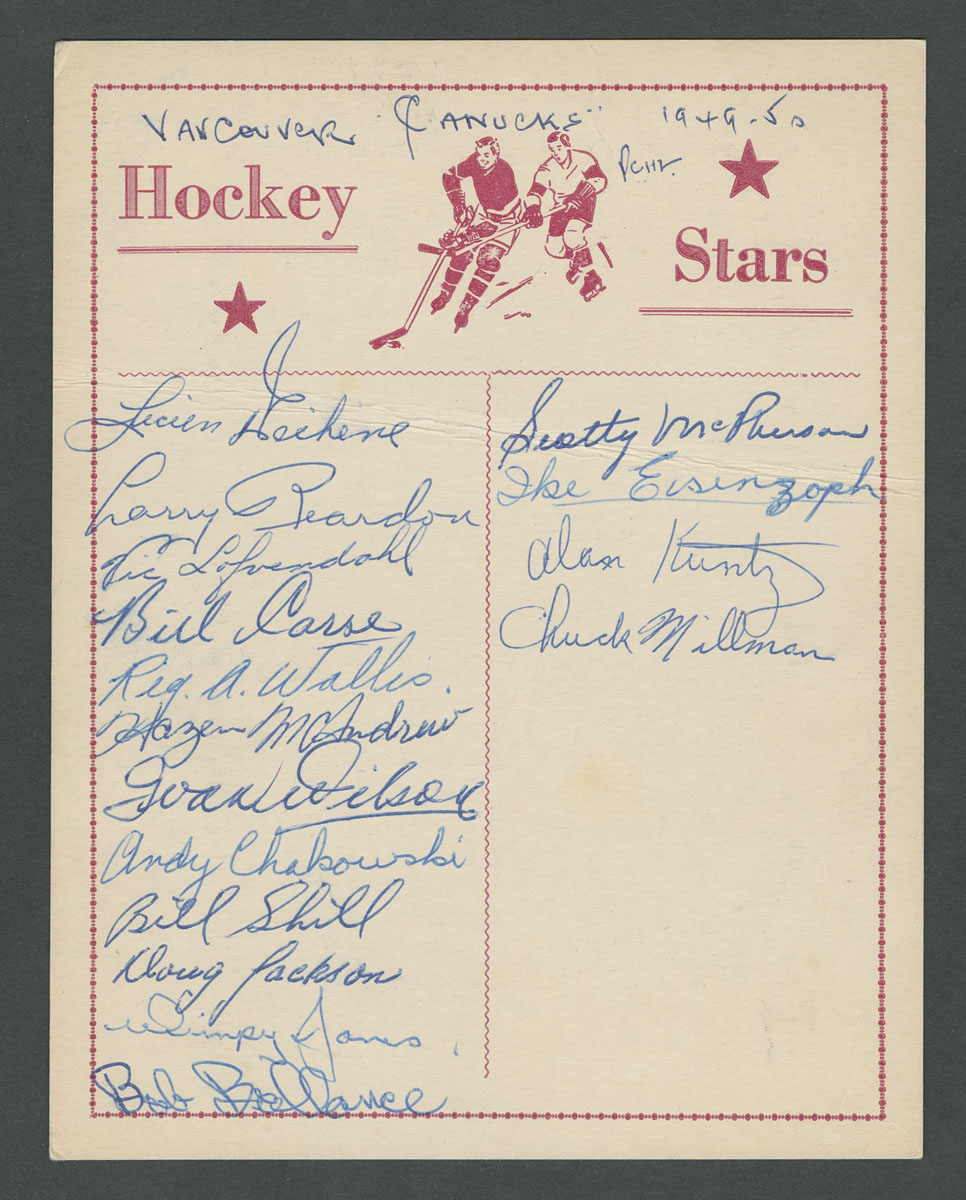 VANCOUVER "CANUCKS" 1949-50
PCHL
Hockey
Stars
Lucien Dechene
Larry Reardon
Vic Lofvendahl
Bill Carse
Reg. A. Wallis.
Hazen McAndrew
Ivan Wilson
Andy Chakowski
Bill Shill
Doug Jackson
Wimpy Jones.
Bob Ballance
Scotty McPherson
Ike Eisenzoph
Alan Kuntz
Chuck Millman